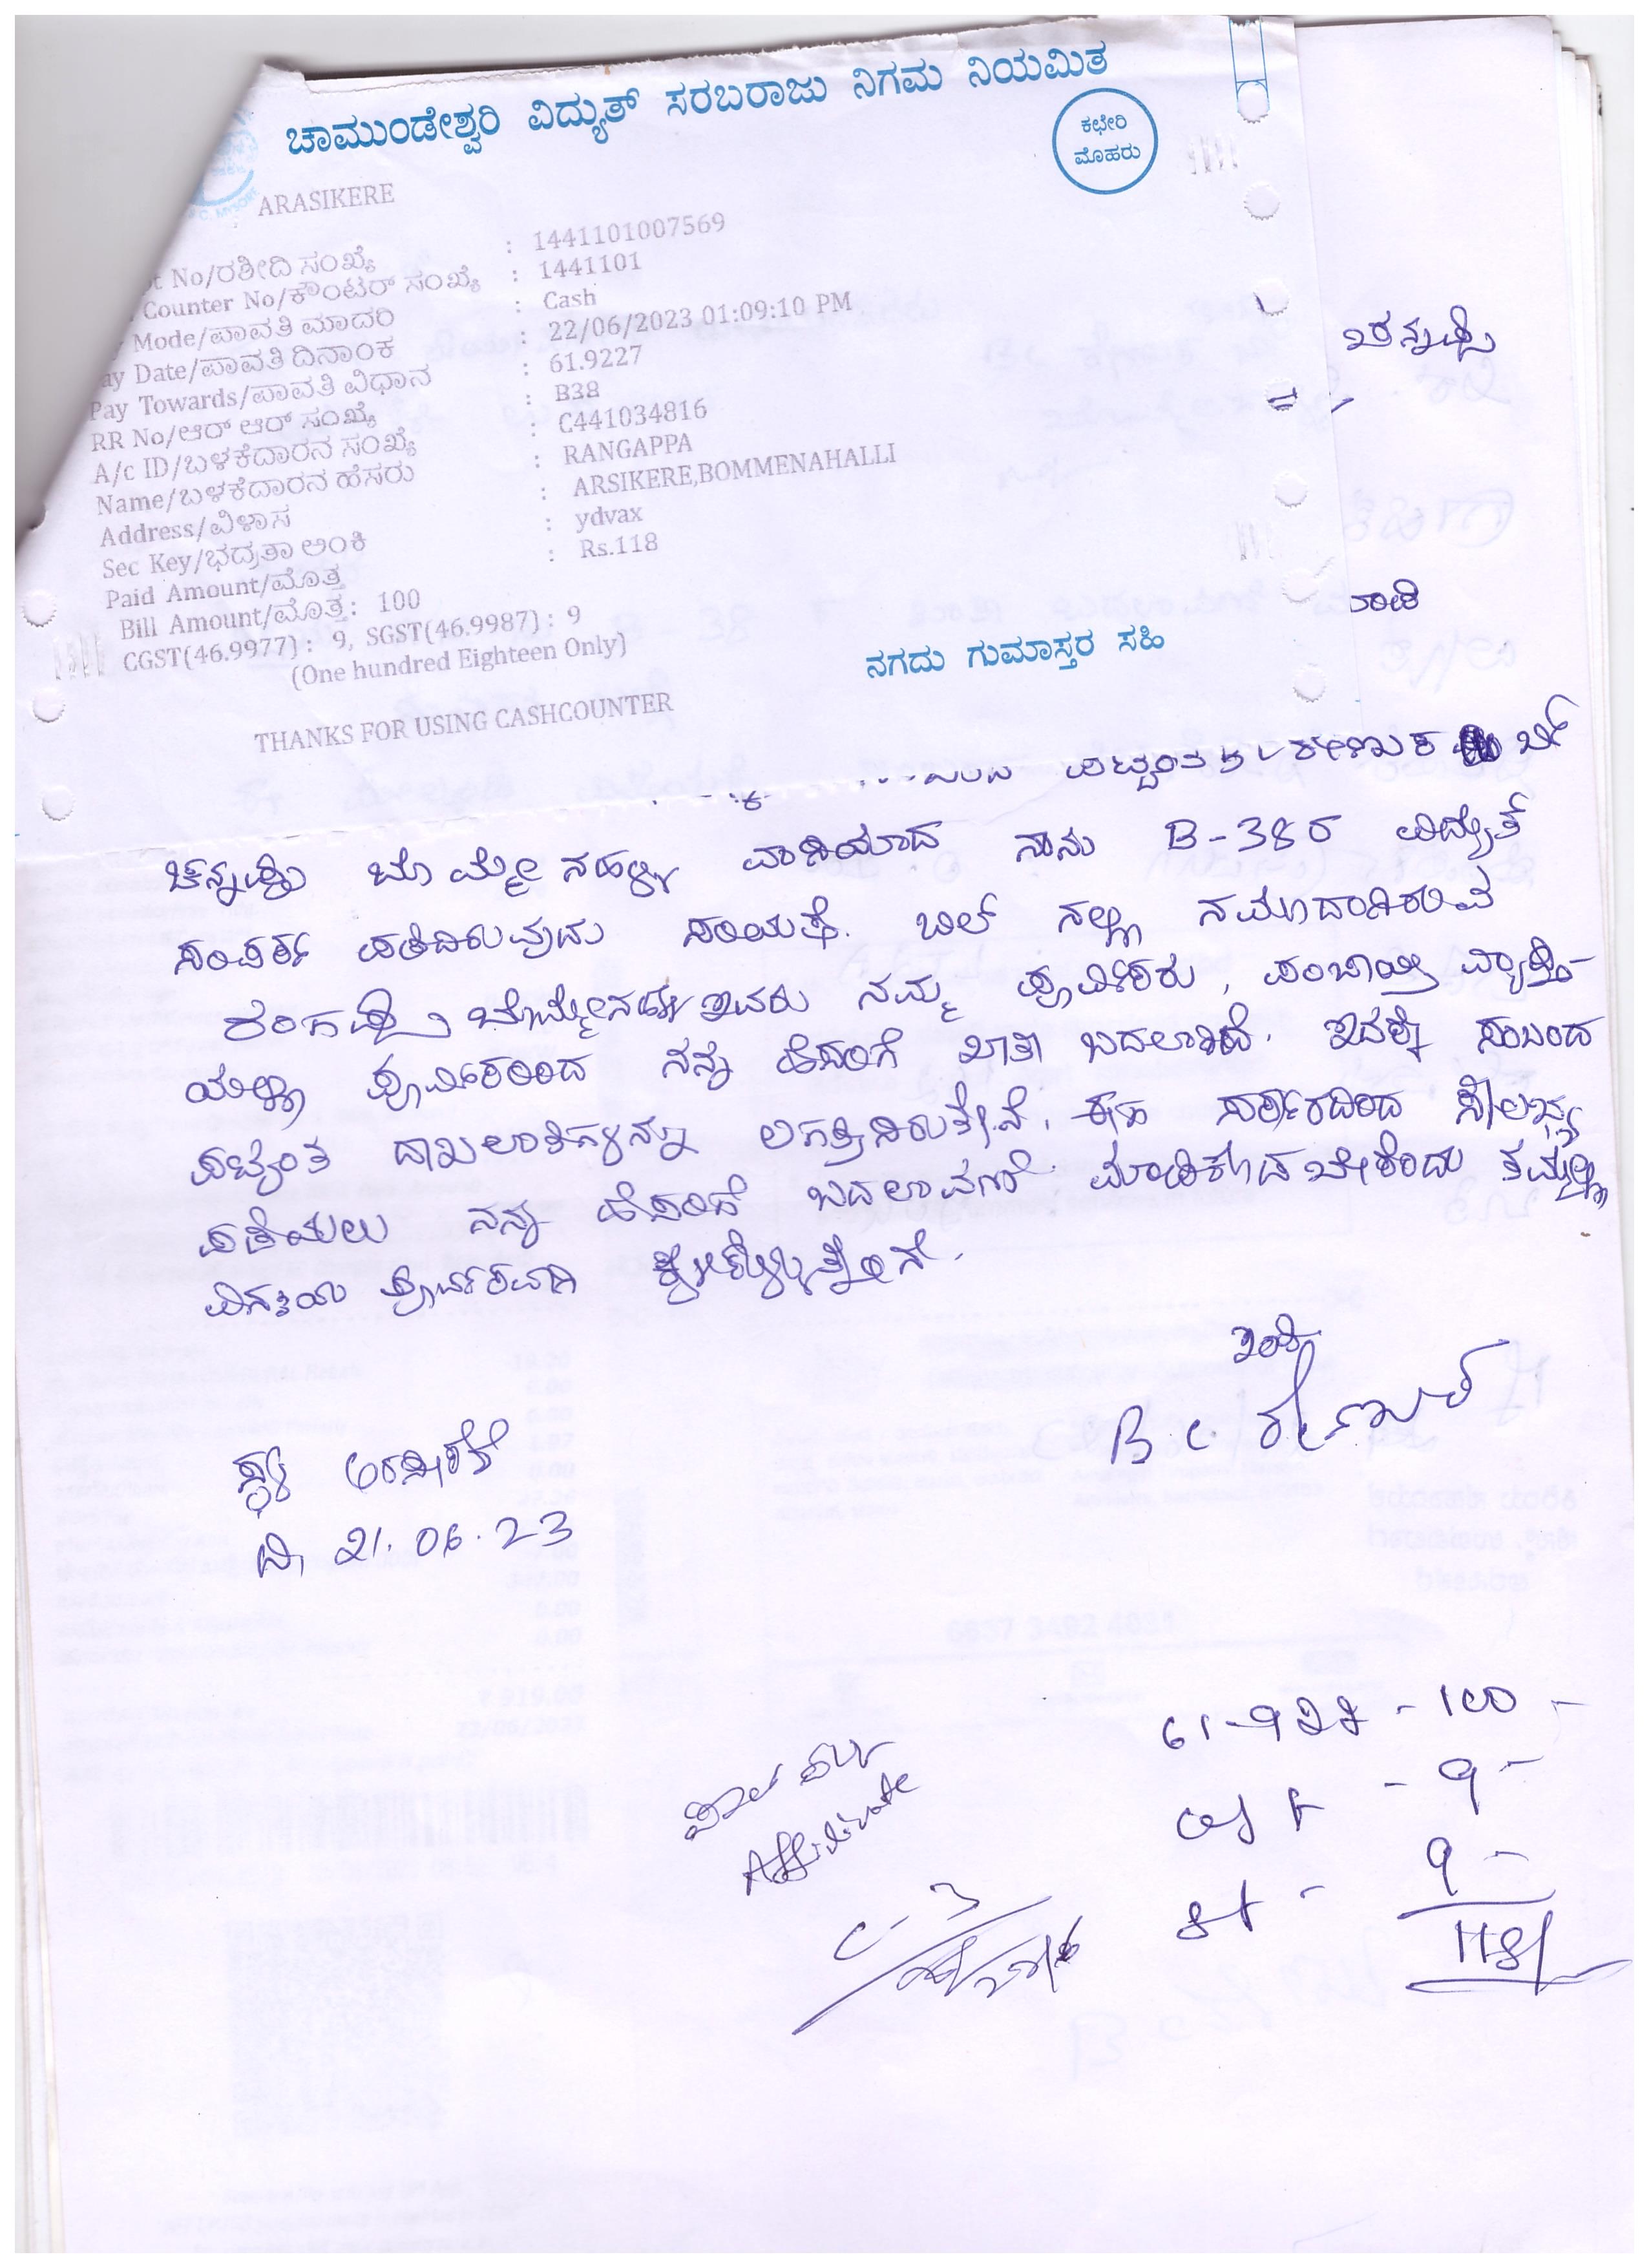 ಚಾಮುಂಡೇಶ್ವರಿ ವಿದ್ಯುತ್ ಸರಬರಾಜು ನಿಗಮ ನಿಯಮಿತ
ಕಛೇರಿ
ಮೊಹರು
ARASIKERE
No/ರಶೀದಿ ಸಂಖ್ಯೆ : 1441101007569
Counter No/ಕೌಂಟರ್ ಸಂಖ್ಯೆ : 1441101
Mode/ಪಾವತಿ ಮಾದರಿ : Cash
Date/ಪಾವತಿ ದಿನಾಂಕ : 22/06/2023 01:09:10 PM
Pay Towards/ಪಾವತಿ ವಿಧಾನ : 61.9227
RR No/ಆರ್ ಆರ್ ಸಂಖ್ಯೆ : B38
A/c ID/ಬಳಕೆದಾರನ ಸಂಖ್ಯೆ : C441034816
Name/ಬಳಕೆದಾರನ ಹೆಸರು : RANGAPPA
Address/ವಿಳಾಸ : ARSIKERE,BOMMENAHALLI
Sec Key/ಭದ್ರತಾ ಅಂಕಿ : ydvax
Paid Amount/ಮೊತ್ತ : Rs.118
Bill Amount/ಮೊತ್ತ: 100
CGST(46.9977) : 9, SGST(46.9987) : 9
(One hundred Eighteen Only)
ನಗದು ಗುಮಾಸ್ತರ ಸಹಿ
THANKS FOR USING CASHCOUNTER
ಬೊಮ್ಮೇನಹಳ್ಳಿ ವಾಸಿಯಾದ ನಾನು B-38ರ ವಿದ್ಯುತ್
ಸಂಪರ್ಕ ಪಡೆದಿರುವುದು ಸರಿಯಷ್ಟೆ. ಬಿಲ್ ನಲ್ಲಿ ನಮೂದಾಗಿರುವ
ಬೊಮ್ಮೇನಹಳ್ಳಿ ಇವರು ನಮ್ಮ ಪೂರ್ವಿಕರು, ಪಂಚಾಯ್ತಿ ವ್ಯಾಪ್ತಿ-
ಯಲ್ಲಿ ಪೂರ್ವಿಕರಿಂದ ನನ್ನ ಹೆಸರಿಗೆ ಖಾತಾ ಬದಲಾಗಿದೆ. ಇದಕ್ಕೆ ಸಂಬಂದ
ಪಟ್ಟಂತ ದಾಖಲಾತಿಗಳನ್ನು ಲಗತ್ತಿಸಿರುತ್ತೇನೆ. ಸರ್ಕಾರದಿಂದ ಸೌಲಭ್ಯ
ಪಡೆಯಲು ನನ್ನ ಹೆಸರಿಗೆ ಬದಲಾವಣೆ ಮಾಡಿಕೊಡಬೇಕೆಂದು ತಮ್ಮಲ್ಲಿ
ವಿನಯ ಪೂರ್ವಕವಾಗಿ ಕೇಳಿಕೊಳ್ಳುತ್ತೇನೆ.
ಇಂತಿ
B. C ರೇಣುಕ
ಸ್ಥಳ ಅರಸೀಕೆರೆ
ದಿ, 21.06.23
- 100 -
- 9 -
Affidivate
9 -
118/